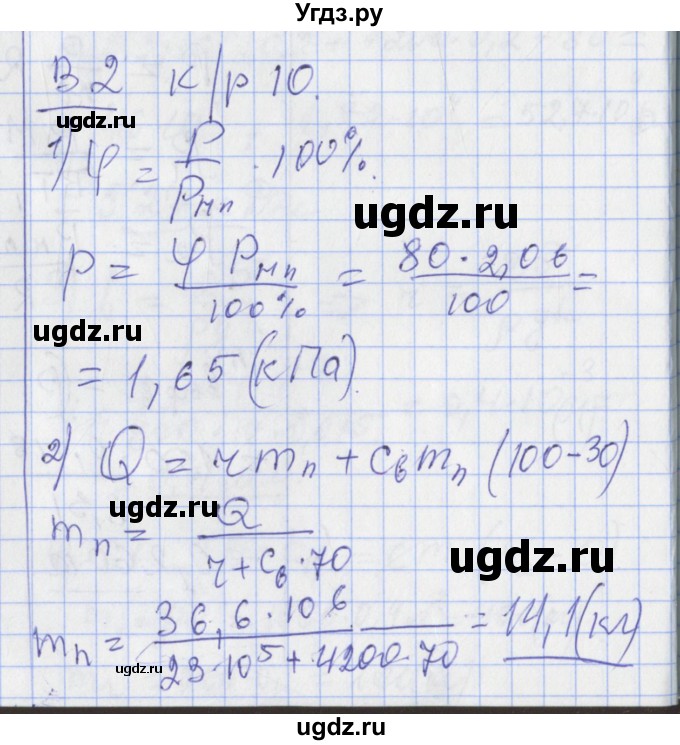 Угдз.ру
В2 к/р 10.
ugdz.ru
1) φ = P/Pнп · 100%.
ugdz.ru
P = φ Pнп / 100% = 80·2,06 / 100 =
ugdz.ru
= 1,65 (кПа).
2) Q = r mп + cв mп (100-30)
ugdz.ru
mп = Q / (r + cв · 70)
ugdz.ru
mп = 36,6·10^6 / (23·10^5 + 4200·70) = 14,1 (кг)
ugdz.ru
ugdz.ru
ugdz.ru